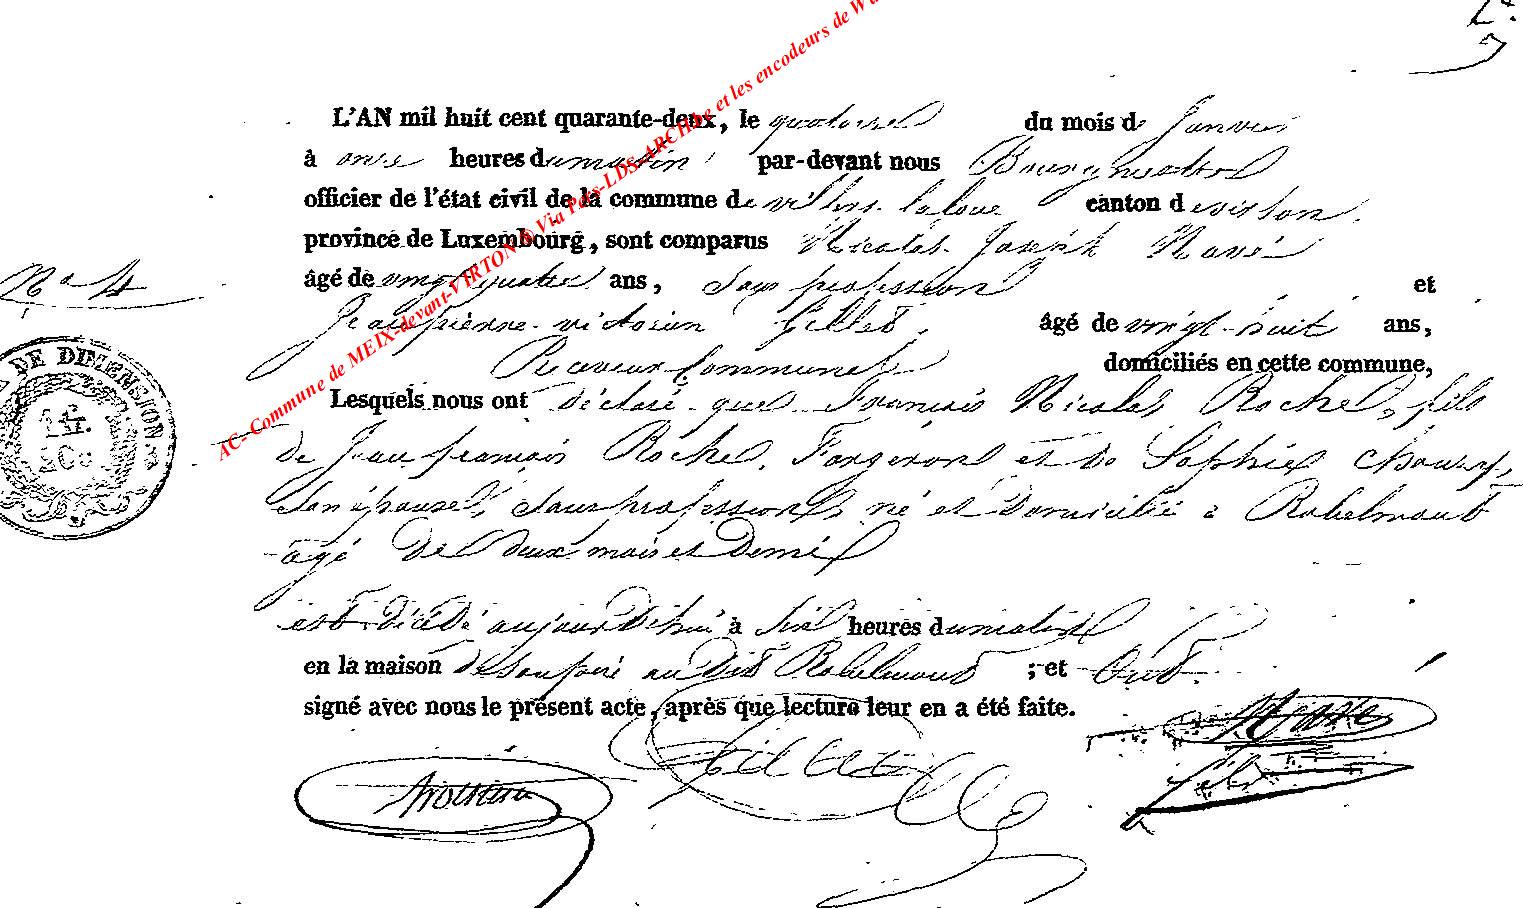 L'AN mil huit cent quarante-deux, le quatorze du mois de Janvier
à onze heures du matin par-devant nous Bourgmestre
officier de l'état civil de la commune de villers laloue canton de virton.
province de Luxembourg, sont comparus Nicolas Joseph
N° 4
âgé de vingt quatre ans, Sans profession et
Jean pierre victorien Gillet, âgé de vingt-huit ans,
Receveur Communal domiciliés en cette commune,
Lesquels nous ont déclaré que François Nicolas Roche, fils
DE DIMENSION.
de Jean françois Roche, Forgeron et de Sophie
son épouse, sans profession, né et domicilié à Robelmont
âgé de deux mois et demi
est décédé aujourd'hui à Six heures du matin
en la maison de son père au dit Robelmont ; et Ont
signé avec nous le présent acte, après que lecture leur en a été faite.
AC- Commune de MEIX-devant-VIRTON © Via Pars-LDS-ARCH.be et les encodeurs de